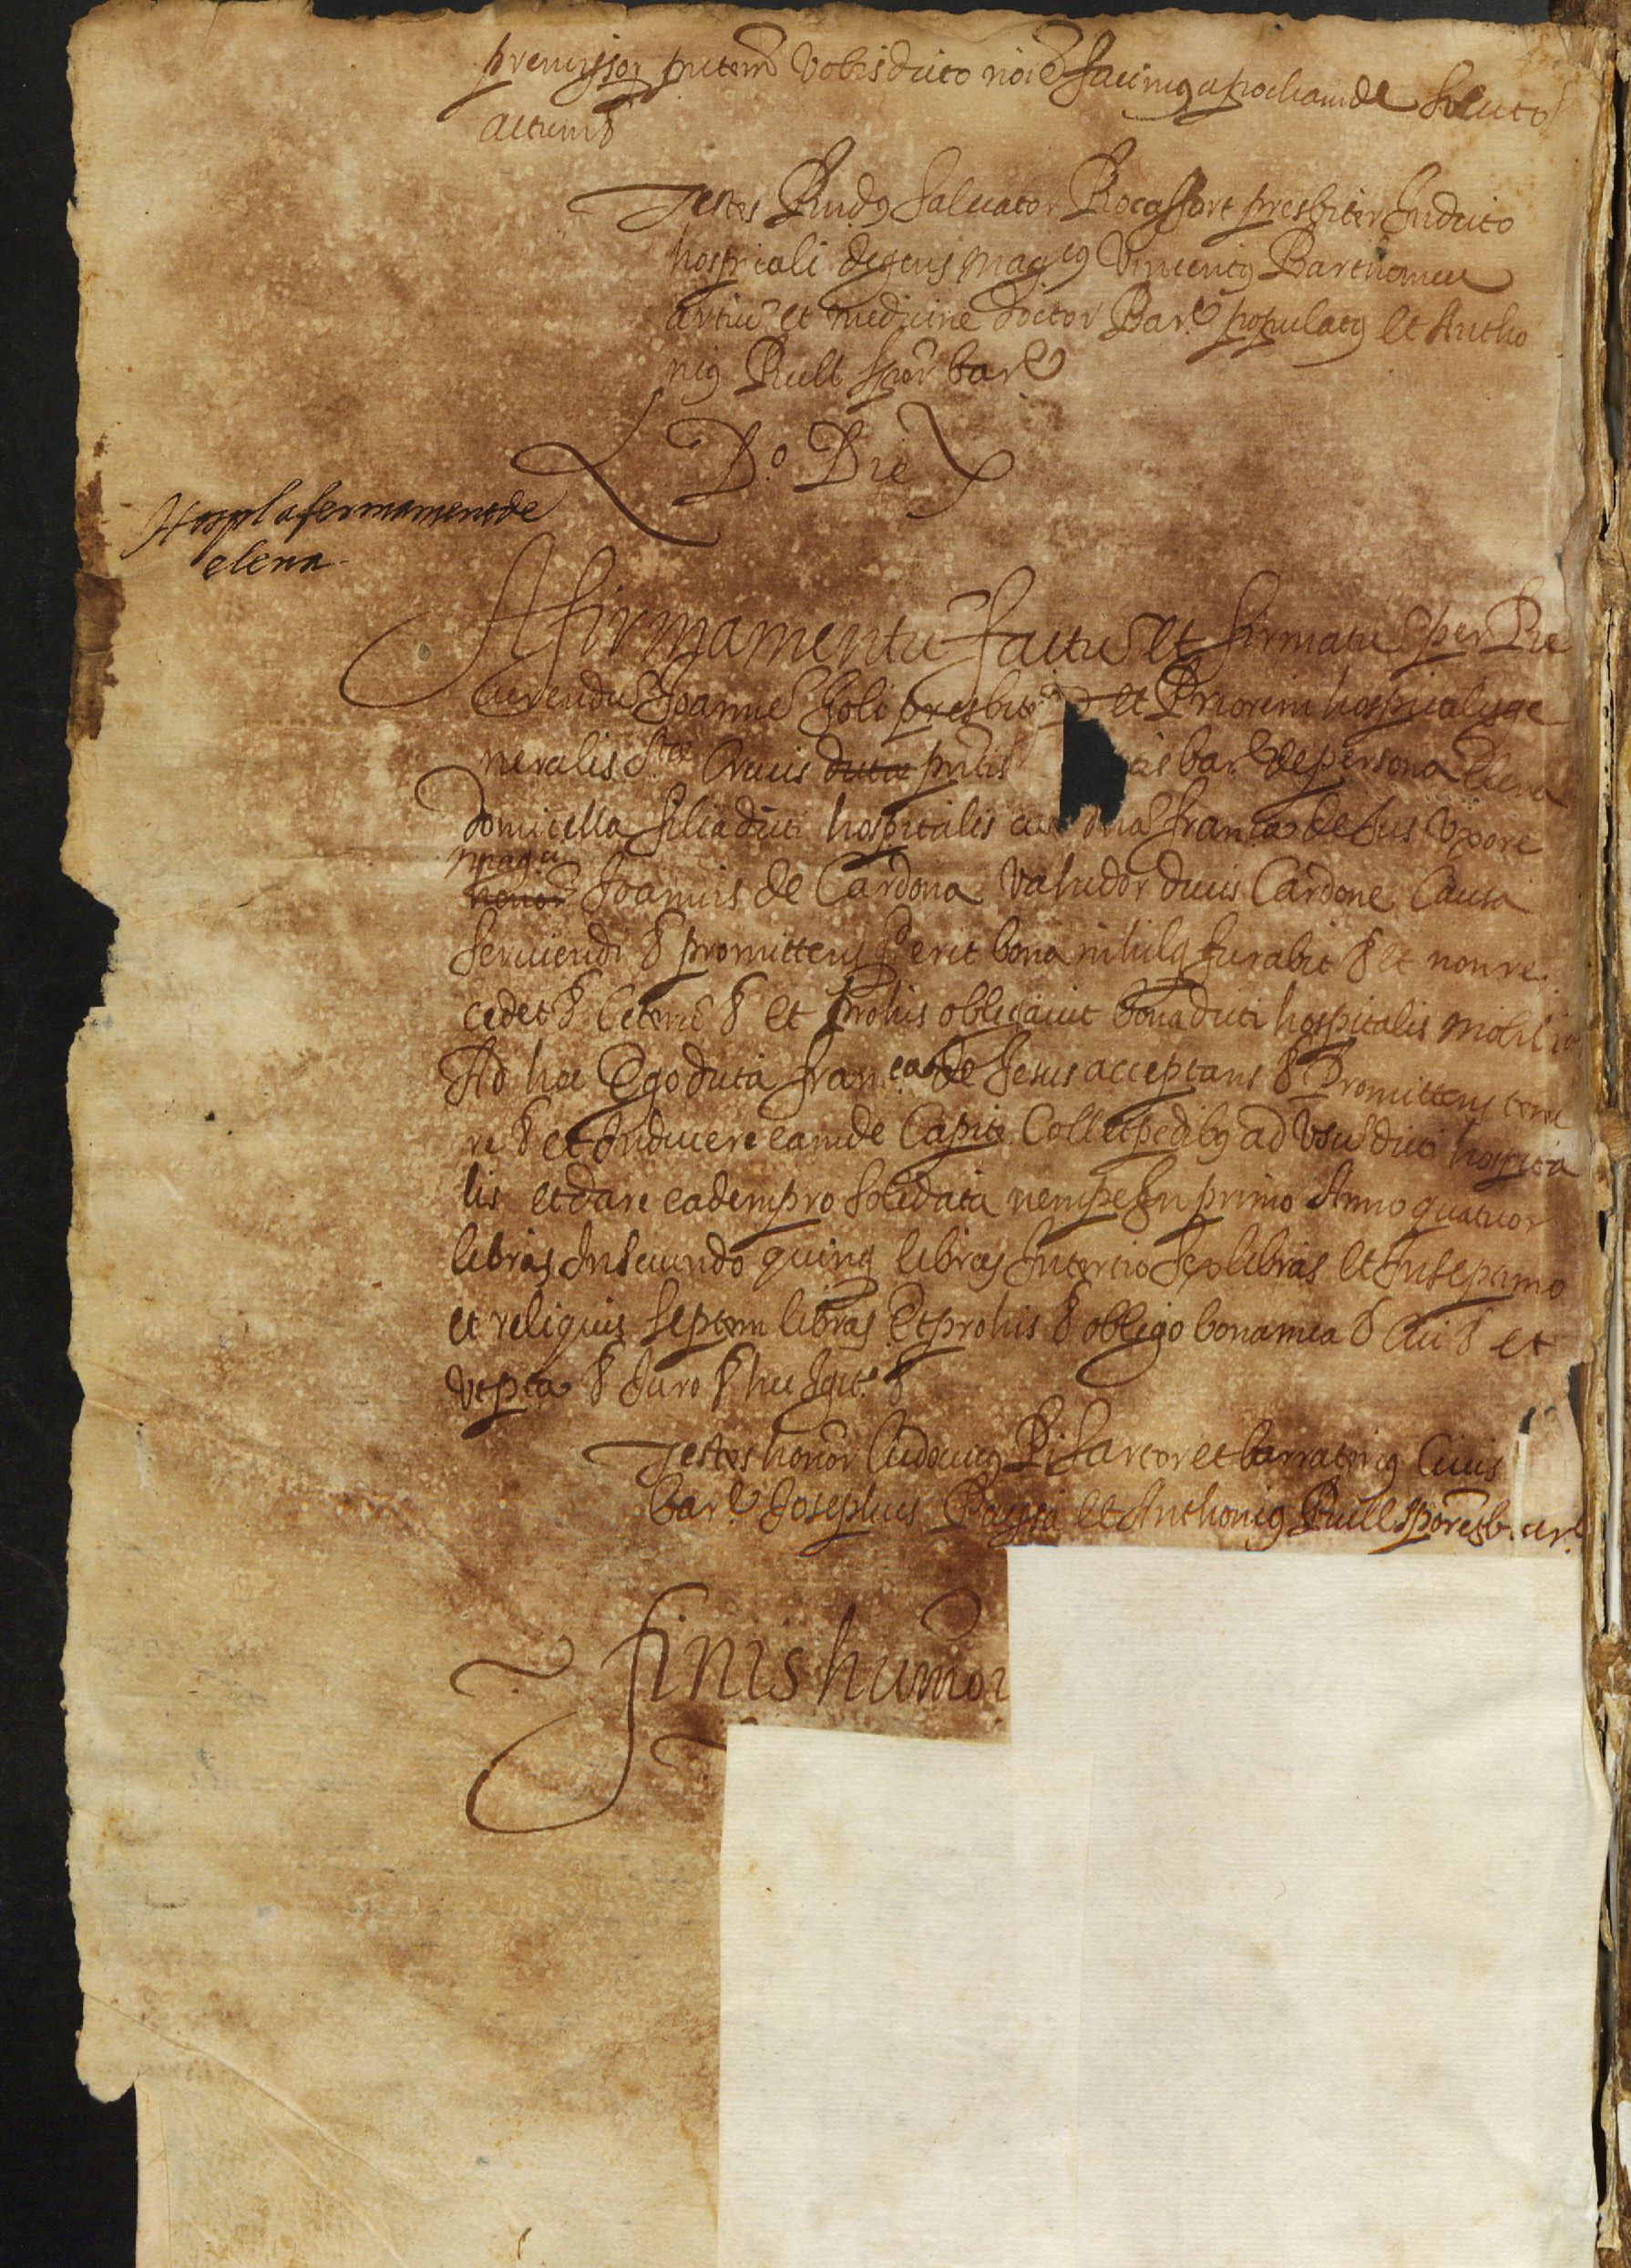 premissor presentem vobis dicto noīe facimus apocham de soluto
actum &
Testes Rndus Salvator Rocafort presbiter In dicto
hospitali degens magcus Vincentius Barthomeu
artiū et medicine doctor Barc populatus et Antho
nius Rull scrōr barc
Do. Die
Hospl afermament de
elena
Afirmamentū factū et firmatū per Re
verendū Joannē Soli presbit et Priorem hospitalis ge
neralis Stæ Crucis dictæ pntis barc de persona Elena
domicella filia dicti hospitalis cum dna franca de Jus Uxore
magci
honor Joannis de Cardona Valudor ducis Cardone Causa
serviendi & promittens q erit bona nihilq furabit & et non re
cedet & Ceterū & et Pro his obligavit bona dicti hospitalis mobilia
Ad hæc Ego dicta franca de Jesus acceptans & Promittens tene
re & et Induere eamde Capite Collet pedibus ad Usū dicti hospita
lis et dare eadem pro solidata nempe In primo Anno quatuor
libras In secundo quinq libras In tertio sex libras et In septimo
et reliquis septem libras Et pro his & obligo bona mea & Cui & et
Ut pta & Juro & huc Igit. &
Testes honor Ludovicus Pi sartor et barratinus Civis
barc Josephus Passia et Anthonius Rull sporēs barc.
finis humor